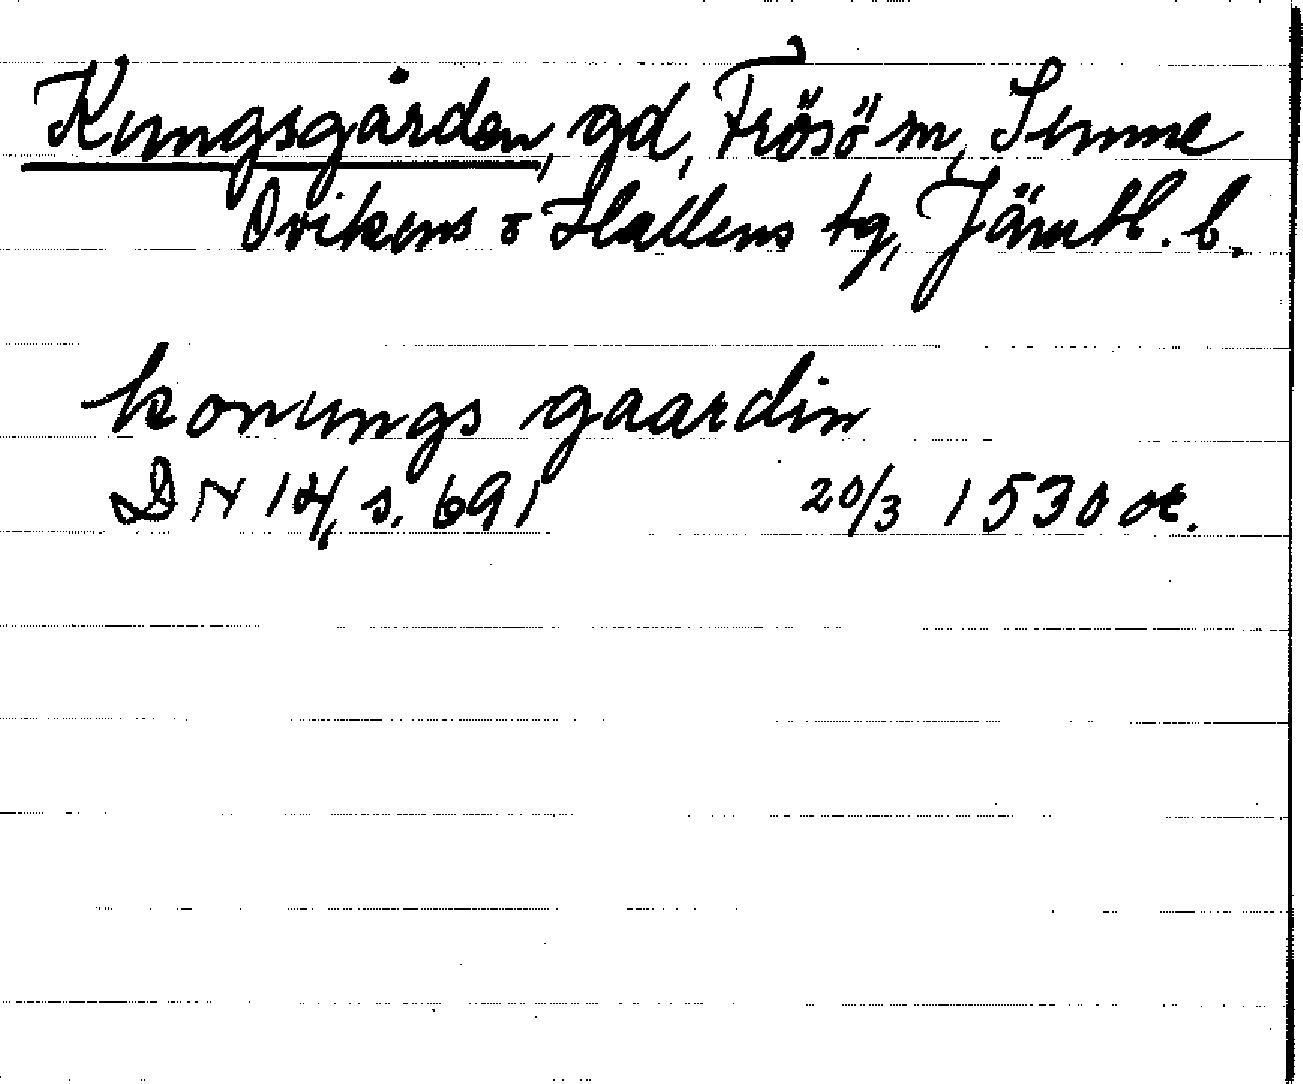 Kungsgården, gd, Frösö sn, Sunne
Ovikens o Hallens tg, Jämtl. l.
konungs gaardin
DN 14, s. 691 20/3 1530 or.